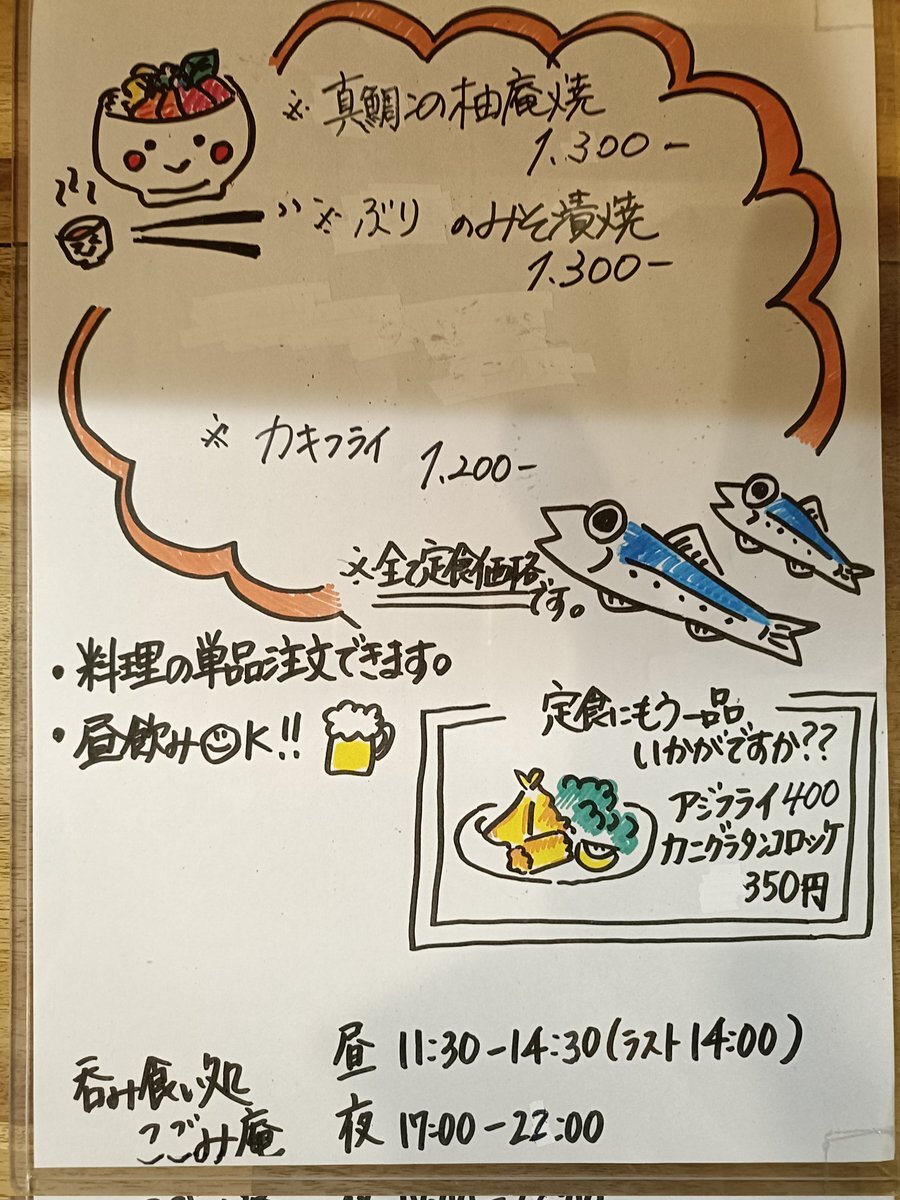 ※ 真鯛の柚庵焼
1.300-
※ ぶり のみそ漬焼
1.300-
※ カキフライ 1.200-
※全て定食価格です。
・料理の単品注文できます。
・昼飲みOK!!
定食にもう一品
いかがですか??
アジフライ400
カニグラタンコロッケ
350円
昼 11:30-14:30(ラスト14:00)
呑み食い処
こごみ庵
夜 17:00-22:00